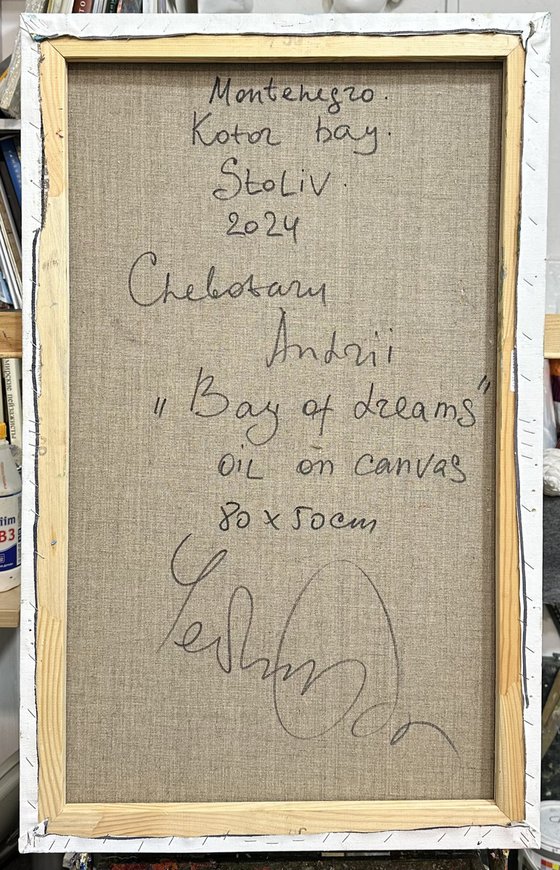 Montenegro.
Kotor bay.
StoLiv.
2024
Chebotaru
Andrii
„Bay of dreams"
oiL on canvas
80 x 50 cm
B3